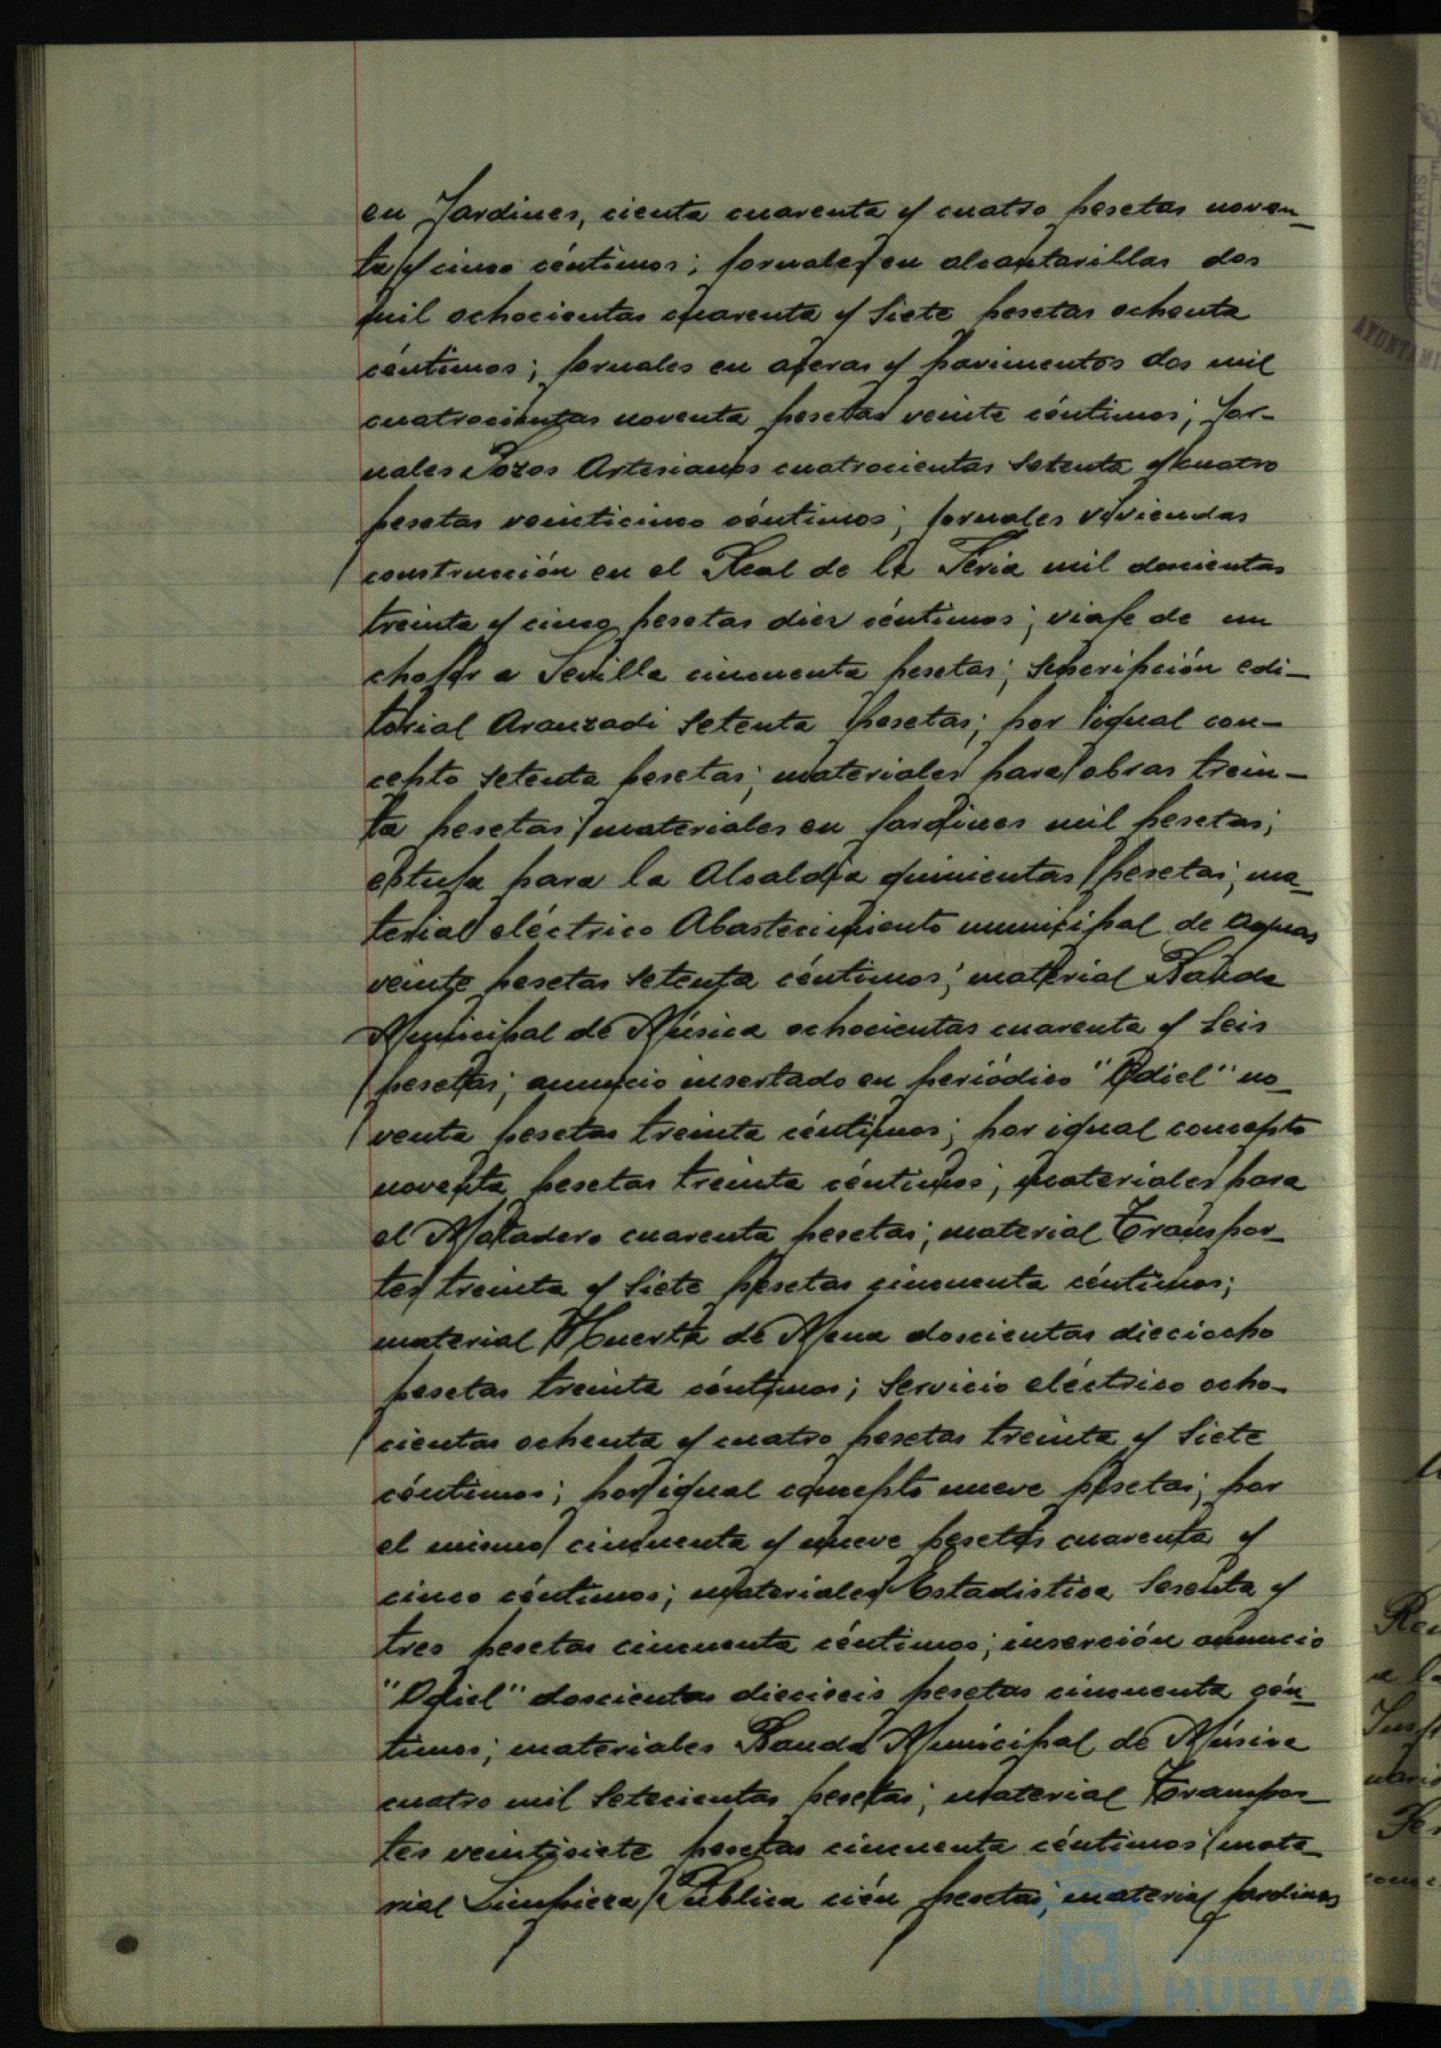 en Jardines, cienta cuarenta y cuatro pesetas noven-
ta y cinco céntimos; jornales en alcantarillas dos
mil ochocientas cuarenta y siete pesetas ochenta
céntimos; jornales en aceras y pavimentos dos mil
cuatrocientas noventa pesetas veinte céntimos; Jor-
nales Pozos Artesianos cuatrocientas setenta y cuatro
pesetas veinticinco céntimos; jornales viviendas
construcción en el Real de la Feria mil doscientas
treinta y cinco pesetas diez céntimos; viaje de un
chofer a Sevilla cincuenta pesetas; suscripción edi-
torial Aranzadi setenta pesetas; por igual con-
cepto setenta pesetas; materiales para obras trein-
ta pesetas; materiales en jardines mil pesetas;
estufa para la Alcaldia quinientas pesetas; ma-
terial eléctrico Abastecimiento municipal de Aguas
veinte pesetas setenta céntimos; material Banda
Municipal de Música ochocientas cuarenta y seis
pesetas; anuncio insertado en periódico "Odiel" no-
venta pesetas treinta céntimos; por igual concepto
noventa pesetas treinta céntimos; materiales para
el Matadero cuarenta pesetas; material Transpor-
tes treinta y siete pesetas cincuenta céntimos;
material Huerta de Mena doscientas dieciocho
pesetas treinta céntimos; servicio eléctrico ocho-
cientas ochenta y cuatro pesetas treinta y siete
céntimos; por igual concepto nueve pesetas; por
el mismo cincuenta y nueve pesetas cuarenta y
cinco céntimos; materiales Estadistica sesenta y
tres pesetas cincuenta céntimos; inserción anuncio
"Odiel" doscientas dieciseis pesetas cincuenta cén-
timos; materiales Banda Municipal de Música
cuatro mil setecientas pesetas; material Transpor-
tes veintisiete pesetas cincuenta céntimos; mate-
rial Limpieza Pública cién pesetas; material jardines
Ayuntamiento de
HUELVA